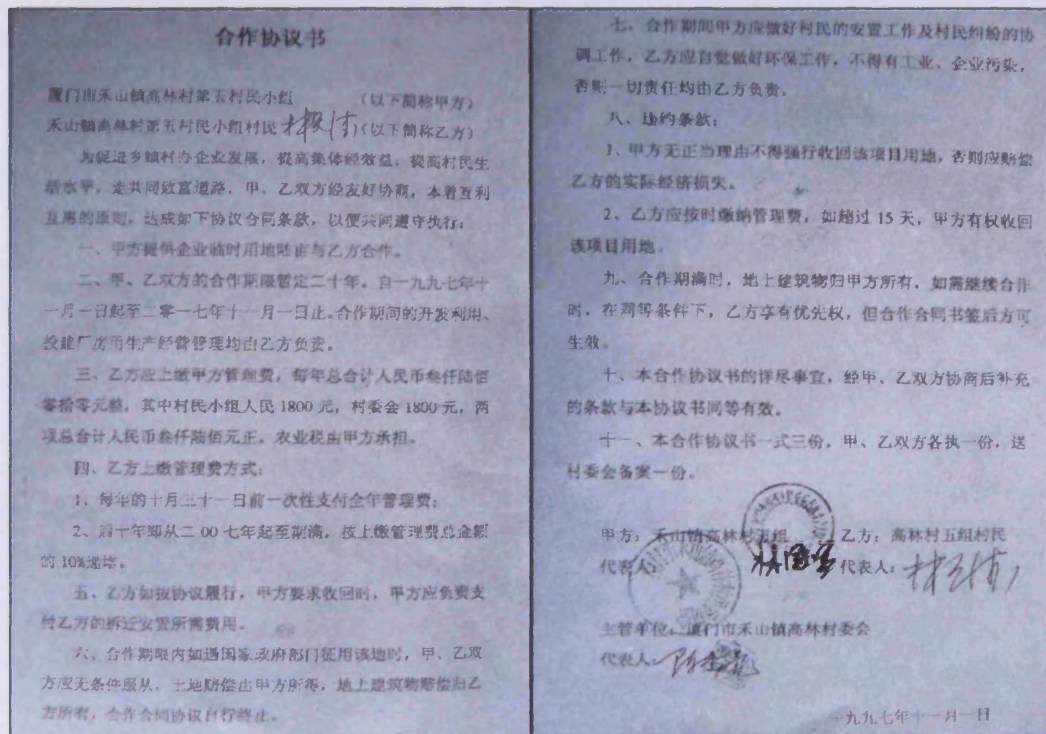 合作协议书
厦门市禾山镇高林村第五村民小组 (以下简称甲方)
禾山镇高林村第五村民小组村民 (以下简称乙方)
为促进乡镇村办企业发展，提高集体经效益，提高村民生
活水平，走共同致富道路，甲、乙双方经友好协商，本着互利
互惠的原则，达成如下协议合同条款，以便共同遵守执行：
一、甲方提供企业临时用地陆亩与乙方合作。
二、甲、乙双方的合作期限暂定二十年。自一九九七年十
一月一日起至二零一七年十一月一日止。合作期间的开发利用、
投建厂房用生产经营管理均由乙方负责。
三、乙方应上缴甲方管理费，每年总合计人民币叁仟陆佰
零拾零元整，其中村民小组人民 1800 元，村委会 1800 元，两
项总合计人民币叁仟陆佰元正，农业税由甲方承担。
四、乙方上缴管理费方式：
1、每年的十月三十一日前一次性支付全年管理费；
2、后十年即从二 00 七年起至期满，按上缴管理费总金额
的 10%递增。
五、乙方如按协议履行，甲方要求收回时，甲方应负责支
付乙方的拆迁安置所需费用。
六、合作期限内如遇国家政府部门征用该地时，甲、乙双
方应无条件服从，土地赔偿由甲方所得，地上建筑物赔偿归乙
方所有，合作合同协议自行终止。
七、合作期间甲方应做好村民的安置工作及村民纠纷的协
调工作，乙方应自觉做好环保工作，不得有工业、企业污染，
否则一切责任均由乙方负责。
八、违约条款：
1、甲方无正当理由不得强行收回该项目用地，否则应赔偿
乙方的实际经济损失。
2、乙方应按时缴纳管理费，如超过 15 天，甲方有权收回
该项目用地。
九、合作期满时，地上建筑物归甲方所有，如需继续合作
时，在同等条件下，乙方享有优先权，但合作合同书签后方可
生效。
十、本合作协议书的详尽事宜，经甲、乙双方协商后补充
的条款与本协议书同等有效。
十一、本合作协议书一式三份，甲、乙双方各执一份，送
村委会备案一份。
甲方：禾山镇高林村五组 乙方：高林村五组村民
代表人： 代表人：
主管单位：厦门市禾山镇高林村委会
代表人：
一九九七年十一月一日